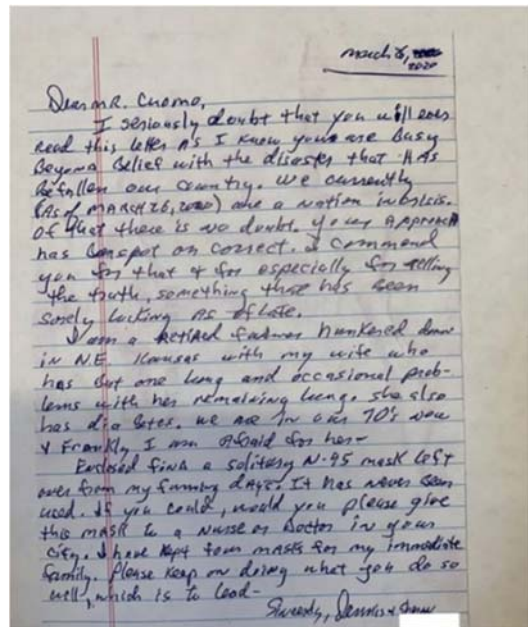 March 26, 2020
Dear Mr. Cuomo,
I seriously doubt that you will ever
read this letter as I know you are busy
beyond belief with the disaster that has
befallen our country. We currently
(as of March 26, 2020) are a nation in crisis.
Of that there is no doubt. Your approach
has been spot on correct. I commend
you for that & for especially for telling
the truth, something that has been
sorely lacking as of late.
I am a retired farmer hunkered down
in N.E. Kansas with my wife who
has but one lung and occasional prob-
lems with her remaining lung. She also
has diabetes. We are in our 70's now
& frankly I am afraid for her-
Enclosed find a solitary N-95 mask left
over from my farming days. It has never been
used. If you could, would you please give
this mask to a nurse or doctor in your
city. I have kept four masks for my immediate
family. Please keep on doing what you do so
well, which is to lead-
Sincerely, Dennis &